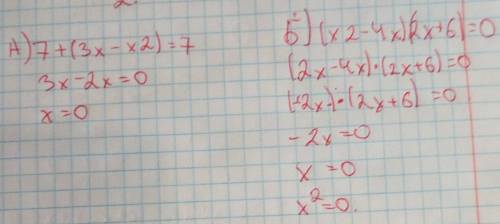 А) 7+(3x-x2)=7
3x-2x=0
x=0
Б) (x2-4x)(2x+6)=0
(2x-4x)·(2x+6)=0
(-2x)·(2x+6)=0
-2x=0
x=0
x²=0.